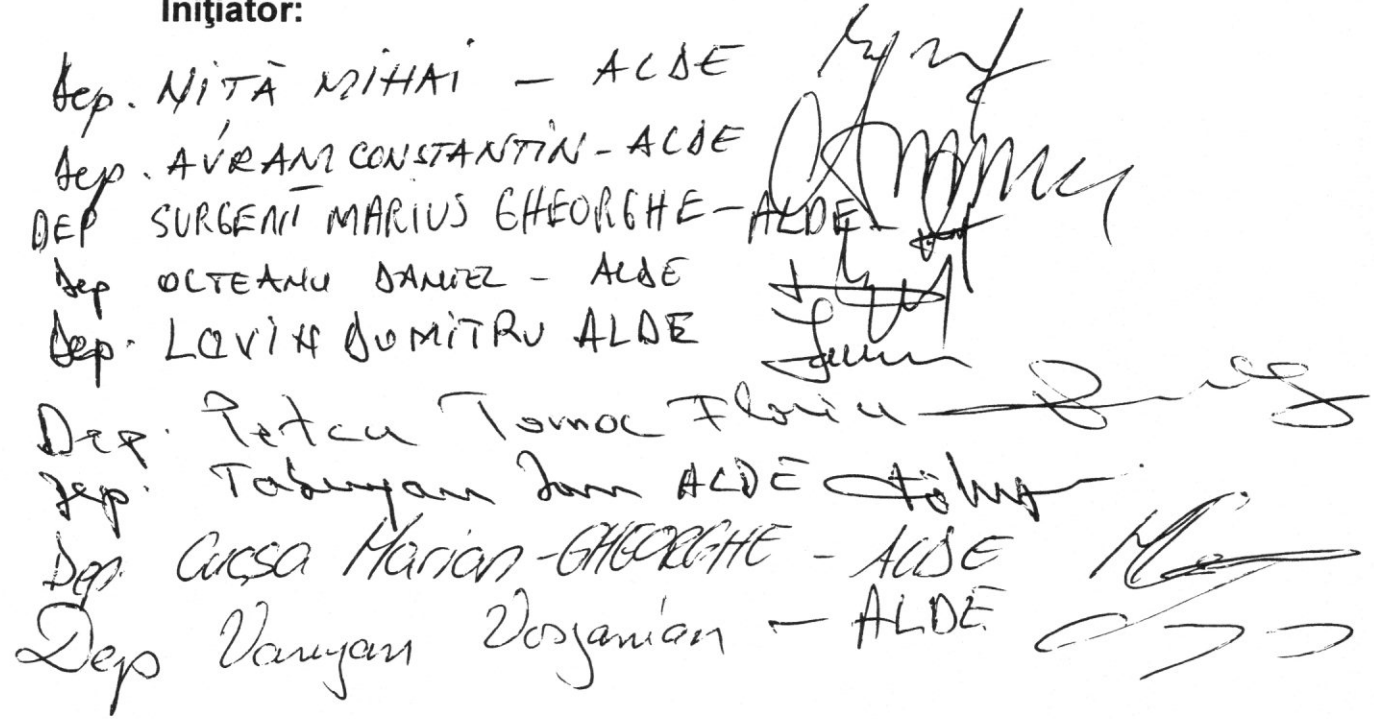 Iniţiator:
Dep. NIŢĂ MIHAI – ALDE
Dep. AVRAM CONSTANTIN – ALDE
DEP SURGENT MARIUS GHEORGHE – ALDE
Dep OLTEANU DANIEL – ALDE
Dep. LOVIN DUMITRU ALDE
Dep. Petcu Toma Florin
Dep. ALDE
Dep. Cucşa Marian-GHEORGHE – ALDE
Dep Varujan Vosganian – ALDE